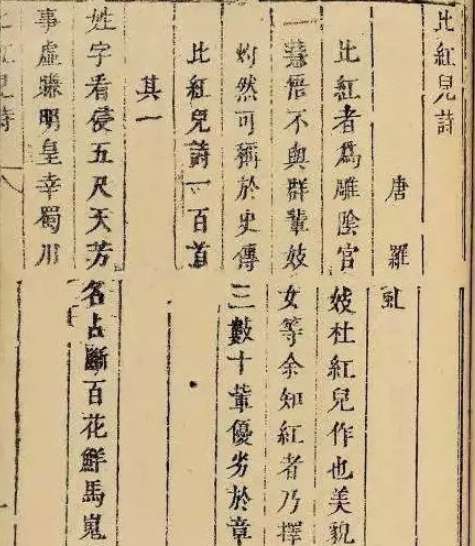 比紅兒詩
唐羅虬
比紅者爲雕陰官妓杜紅兒作也美貌
慧悟不與群輩妓女等余知紅者乃擇
灼然可稱於史傳三數十輩優劣於章
比紅兒詩一百首
其一
姓字看侵五尺天芳名占斷百花鮮馬嵬
事虛賺明皇幸蜀川
比紅兒詩